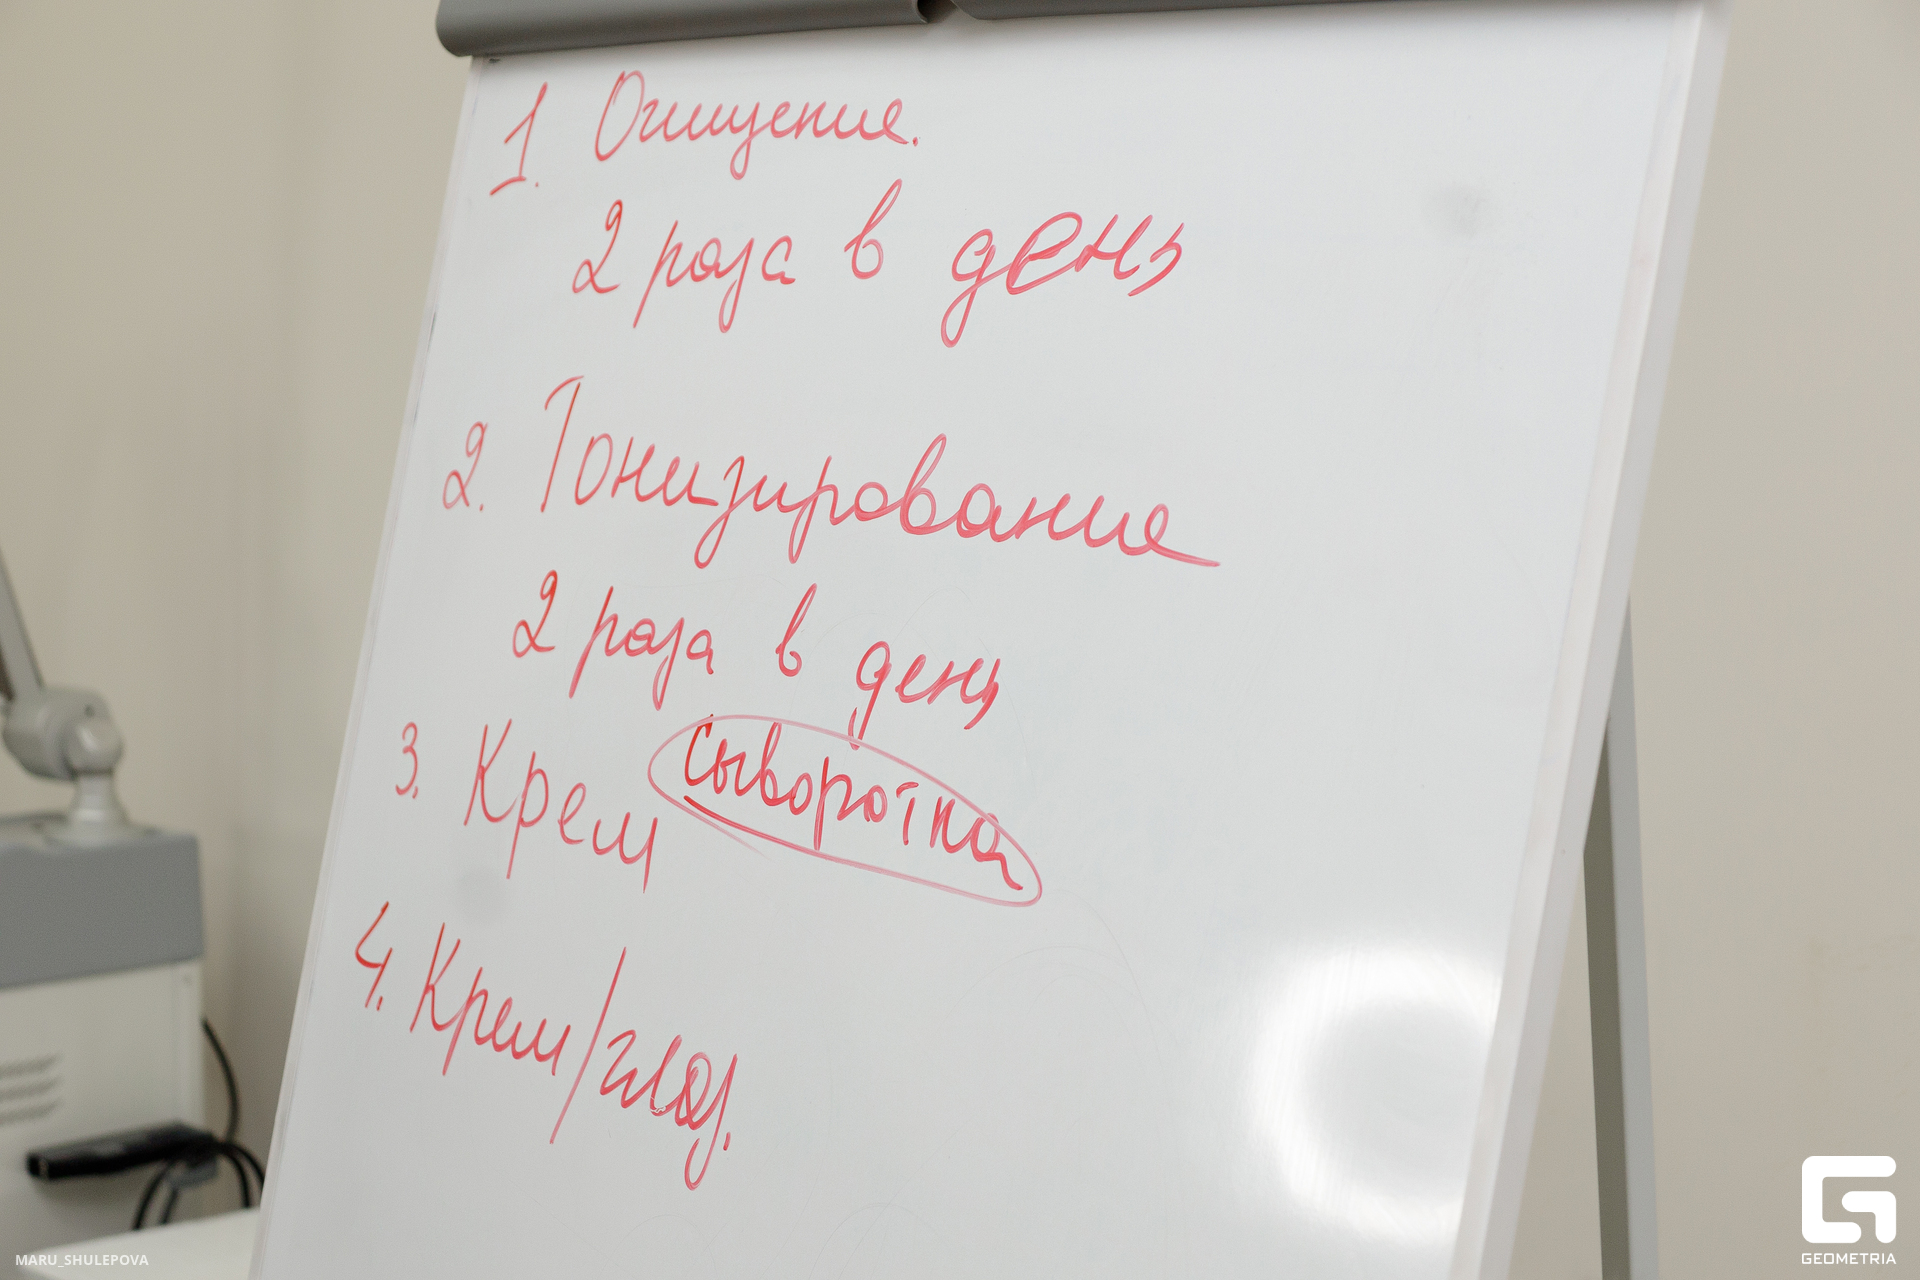 1. Очищение.
2 раза в день
2. Тонизирование
2 раза в день
3. Крем сыворотка
4. Крем/глаз.
MARU_SHULEPOVA
GEOMETRIA